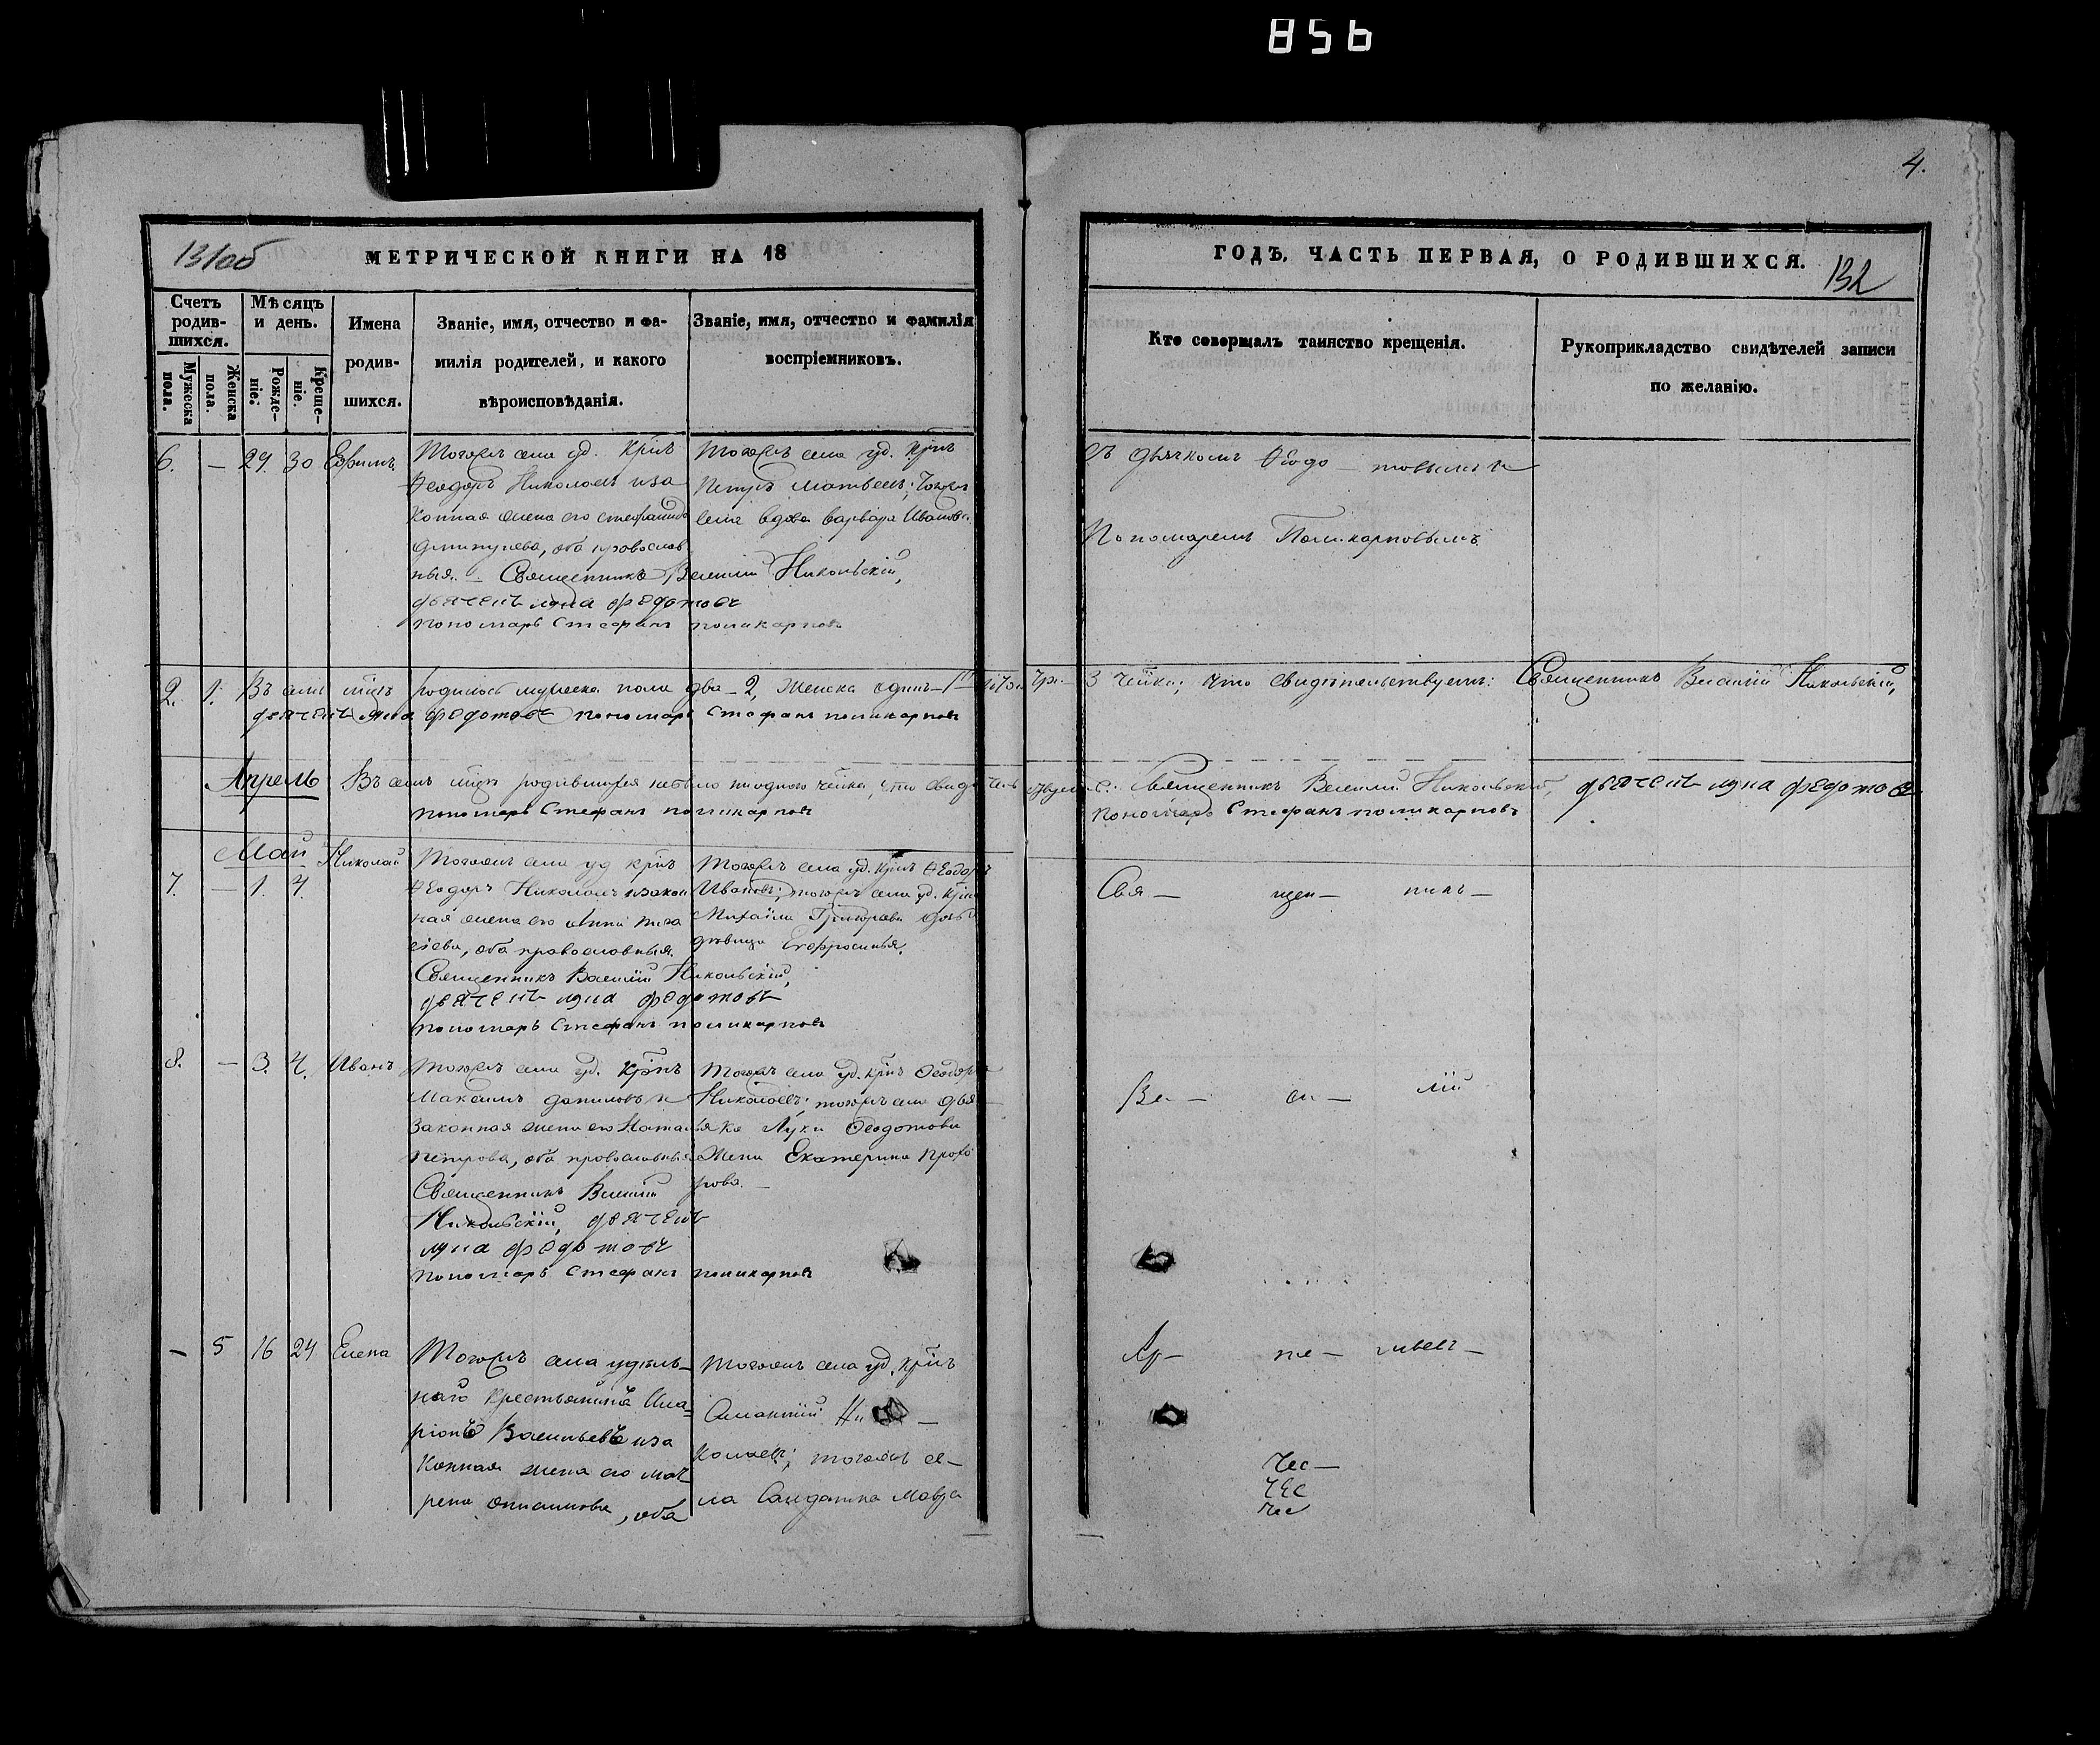 856
4.
131об
МЕТРИЧЕСКОЙ КНИГИ НА 18
ГОДЪ, ЧАСТЬ ПЕРВАЯ, О РОДИВШИХСЯ.
132
Счетъ родив-шихся.
Мужеска пола.
Женска пола.
Мѣсяцъ и день.
Рожде-ніе.
Креще-ніе.
Имена
родив-
шихся.
Званіе, имя, отчество и фа-
милія родителей, и какого
вѣроисповѣданія.
Званіе, имя, отчество и фамилія
воспріемниковъ.
Кто совершалъ таинство крещенія.
Рукоприкладство свидѣтелей записи
по желанію.
6. — 29. 30 Ефимъ
Тогожъ села уд. крнъ
Ѳеодоръ Николаевъ и за
конная жена его
оба православ
ныя. Священникъ Василій Никольскій,
дьячекъ лука федотовъ
пономарь Стефанъ поликарповъ
Тогожъ села уд. крнъ
Петръ Матвеевъ; тогожъ
села вдова варвара Иванова
Съ дьячкомъ Ѳедо — товымъ и
Пономаремъ Поликарповымъ
2. 1. Въ семъ мцѣ родилось мужеска пола два — 2, Женска одинъ — 1 три — 3 чвка; что свидѣтельствуемъ: Священникъ Василій Никольскій,
дьячекъ лука федотовъ пономарь Стефанъ поликарповъ
Апрель Въ семъ мцѣ родившихся небыло ниодного чвка, что свидѣтельствуемъ: Священникъ Василій Никольскій, дьячекъ лука федотовъ
пономарь Стефанъ поликарповъ
пономарь Стефанъ поликарповъ
Май
7. — 1. 4. Николай
Тогожъ села уд крнъ
Ѳеодоръ Николаевъ и закон
ная жена его Анна
оба православныя.
Священникъ Василій Никольскій,
дьячекъ лука федотовъ
пономарь Стефанъ поликарповъ
Тогожъ села уд. крнъ Ѳеодоръ
Ивановъ; тогожъ села уд. крна
Михайла Григорьева дочь
дѣвица Евфросинья.
Свя — щен — никъ —
8. — 3. 4. Иванъ
Тогожъ села уд. крнъ
Максимъ даниловъ и
законная жена его Наталья
петрова, оба православныя
Священникъ Василій
Никольскій, дьячекъ
лука федотовъ
пономарь Стефанъ поликарповъ
Тогожъ села уд. крнъ Ѳеодоръ
Николаевъ; тогожъ села дья
ка Луки Ѳеодотова
Жена Екатерина Прохо
рова. —
Ва — си — лій
— 5 16 24 Елена
Тогожъ села удѣль-
наго крестьянина Ила=
ріонъ Васильевъ и за
конная жена его мат
рена , оба
Тогожъ села уд. крнъ
Ни —
колаевъ; тогожъ се —
ла Солдатка Мавра
Ар — те — мьевъ —
Чес —
Чес
Чес